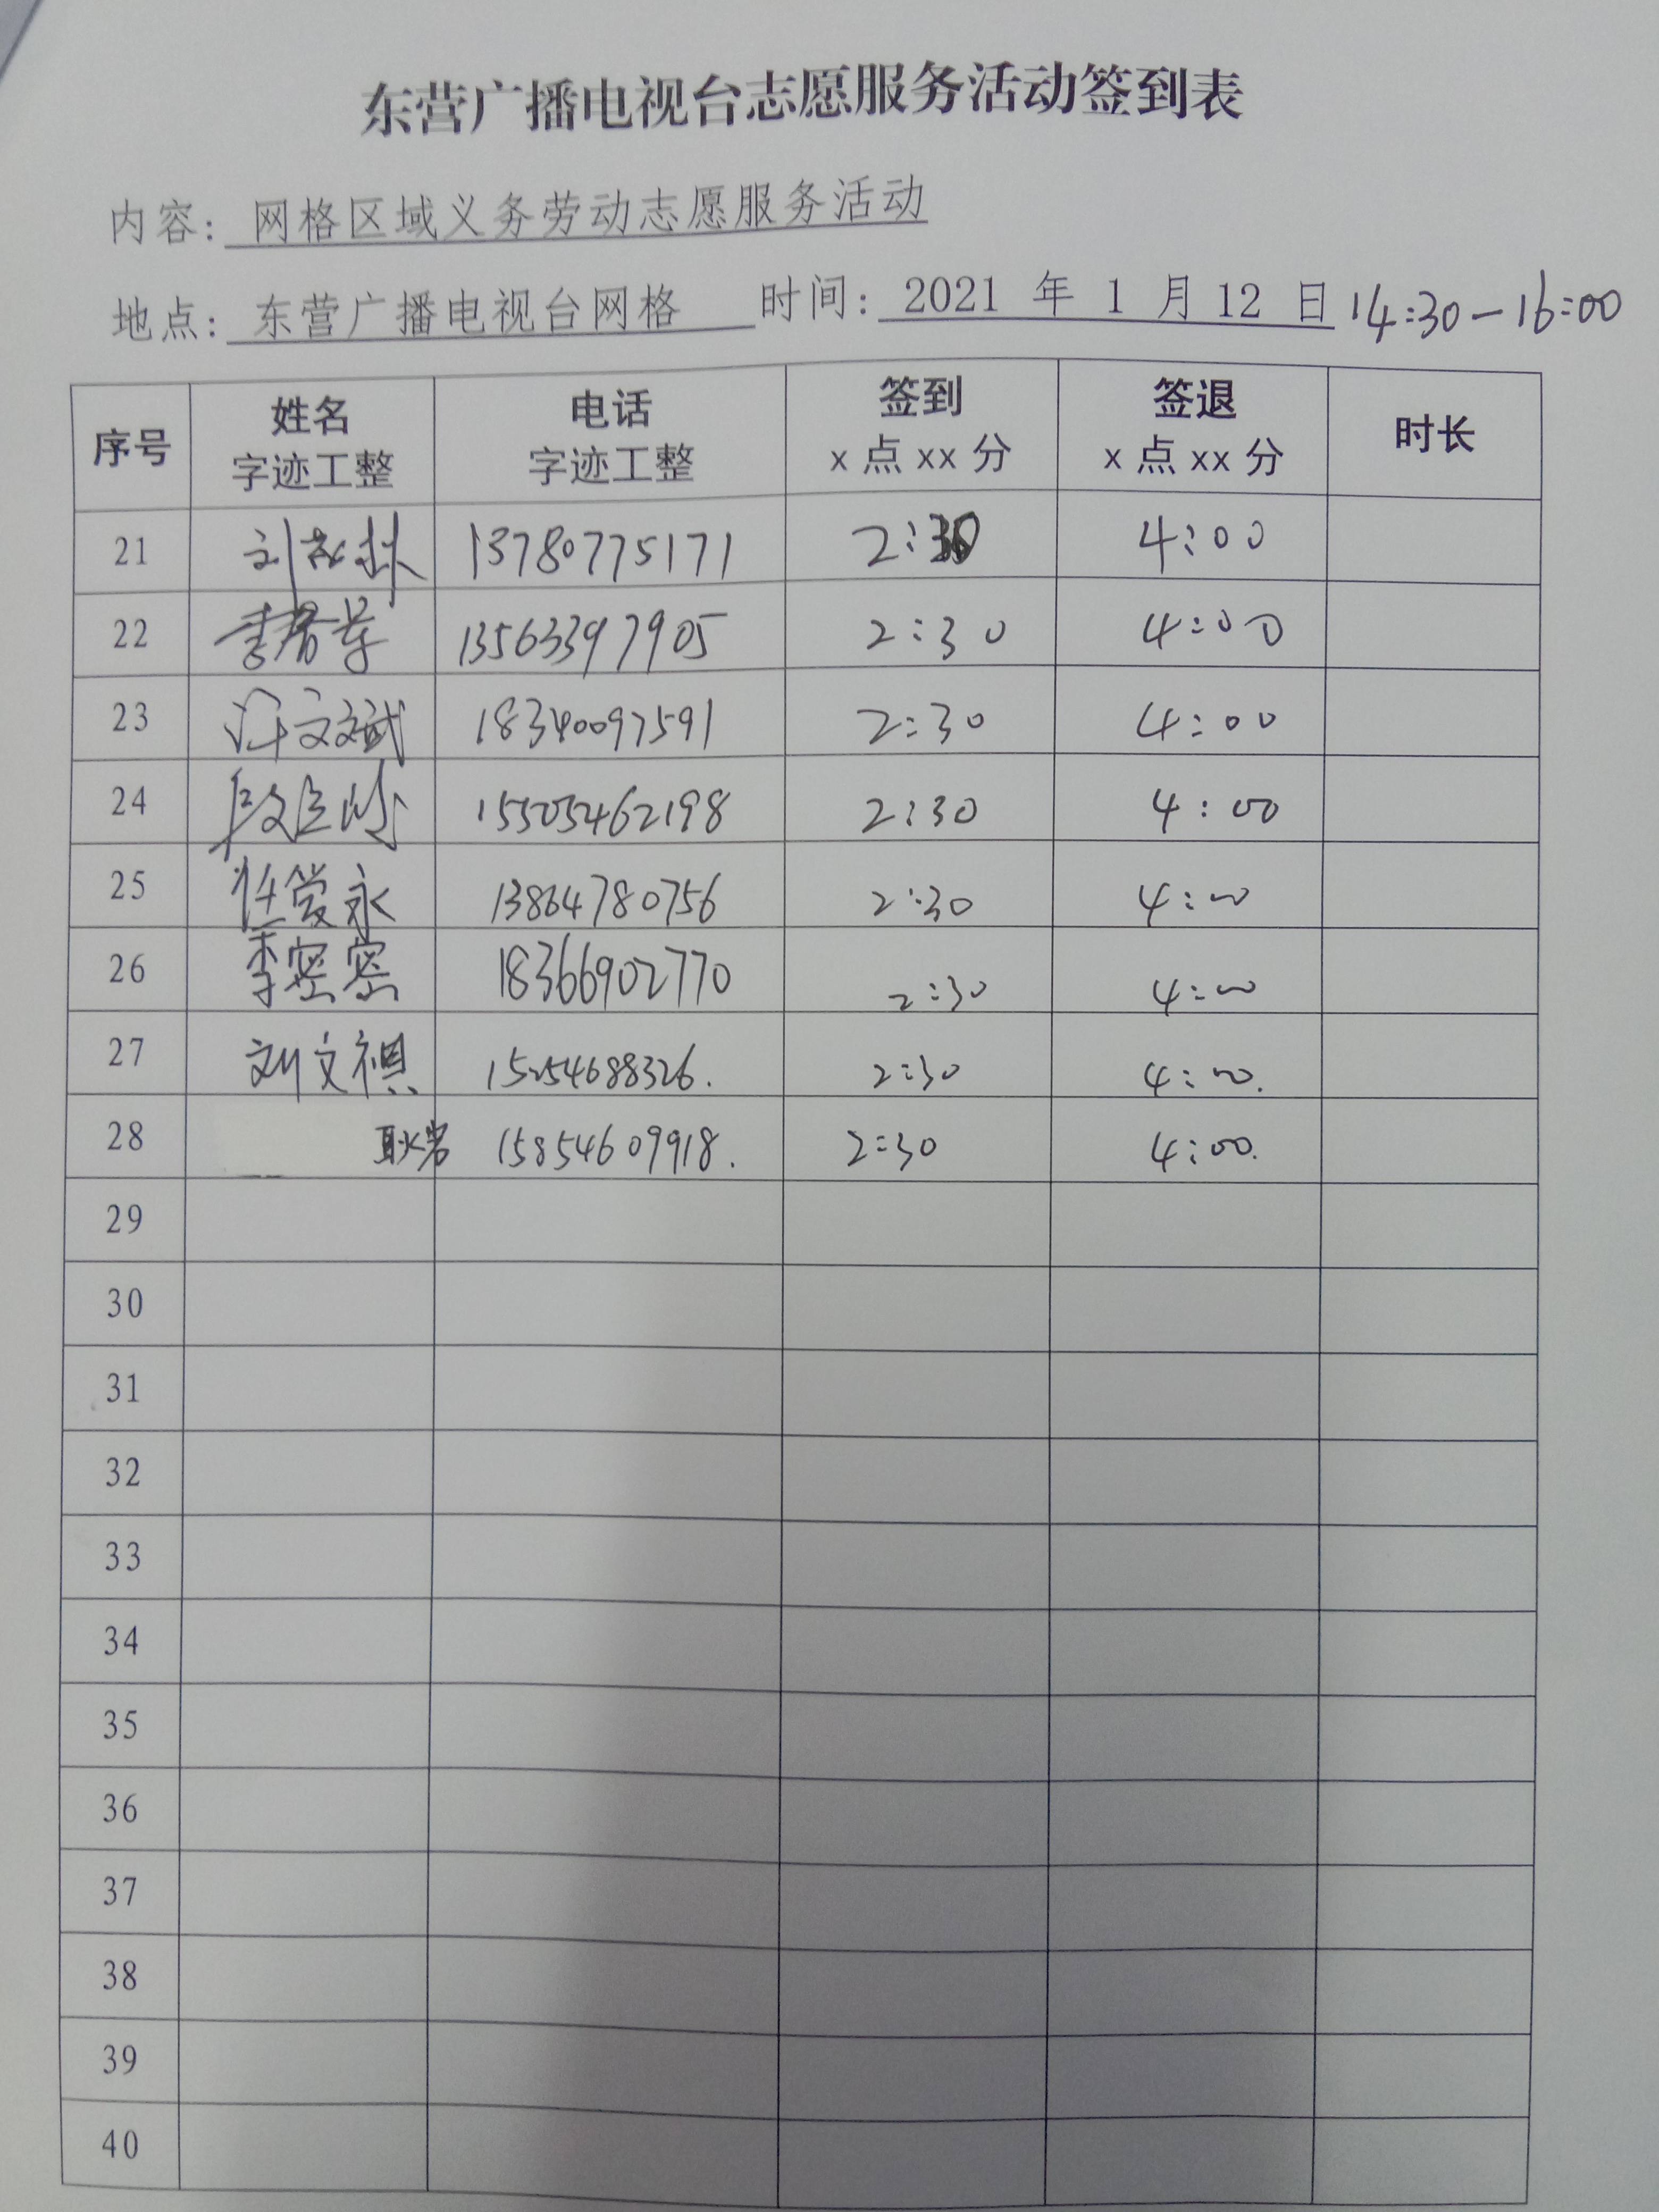 东营广播电视台志愿服务活动签到表
内容: 网格区域义务劳动志愿服务活动
地点: 东营广播电视台网格 时间: 2021 年 1 月 12 日 14:30-16:00
序号 姓名 字迹工整 电话 字迹工整 签到 x 点 xx 分 签退 x 点 xx 分 时长
21 13780775171 2:30 4:00
22 13563397905 2:30 4:00
23 18340097591 2:30 4:00
24 15505462198 2:30 4:00
25 任爱永 13864780756 2:30 4:00
26 李密密 18366902770 2:30 4:00
27 刘文祺 15254688326. 2:30 4:00.
28 耿岩 15854609918. 2:30 4:00.
29
30
31
32
33
34
35
36
37
38
39
40